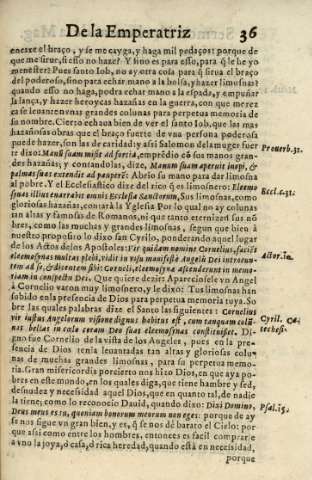 De la Emperatriz 36
enexe el braço, y se me cayga, y haga mil pedaços: porque de
que me sirue, si esso no haze? Y sino es para esso, para q̃ le he yo
menester? Pues santo Iob, no ay otra cosa para q̃ sirua el braço
del poderoso, sino para echar mano a la bolsa, y hazer limosnas?
quando esso no haga, podra echar mano a la espada, y empuñar
la lança, y hazer heroycas hazañas en la guerra, con que merez
ca se leuanten vnas grandes colunas para perpetua memoria de
su nombre. Cierto echaua bien de ver el santo Iob, que las mas
hazañosas obras que el braço fuerte de vna persona poderosa
puede hazer, son las de caridad: y assi Salomon de la muger fuer
te dixo: Manũ suam misit ad fortia, emprẽdio cõ sus manos gran-
des hazañas; y contandolas, dize, Manum suam aperuit inopi, &
palmas suas extendit ad pauperẽ: Abrio su mano para dar limosna
al pobre. Y el Ecclesiastico dize del rico q̃ es limosnero: Eleemo
synas illius enarrabit omnis Ecclesia Sanctorum, Sus limosnas, como
gloriosas hazañas, contarà la Yglesia Por lo qual no ay colunas
tan altas y famosas de Romanos, ni que tanto eternizen sus nõ
bres, como las muchas y grandes limosnas, segun que bien à
nuestro proposito lo dixo san Cyrilo, ponderando aquel lugar
de los Actos de los Apostoles: Vir quidam nomine Cornelius, faciẽs
eleemosynas multas plebi, vidit in visu manifestè Angelũ Dei introeun-
tem ad se, & dicentem sibi: Corneli, eleemosynæ ascenderunt in memo-
riam in conspectu Dei. Que quiere dezir: Aparecinsele vn Angel
à Cornelio varon muy limosnero, y le dixo: Tus limosnas han
subido en la presencia de Dios para perpetua memoria tuya. So
bre las quales palabras dize el Santo las siguientes: Cornelius
vir iustus Angelorum visione dignus habitus est, cum tanquam colũ
nas bellas in cœlo coram Deo suas eleemosynas constituisset. Di-
gno fue Cornelio de la vista de los Angeles, pues en la pre-
sencia de Dios tenia leuantadas tan altas y gloriosas colu-
nas de muchas grandes limosnas, para su perpetua memo-
ria. Gran misericordia porcierto nos hizo Dios, en que aya po-
bres en este mondo, en los quales diga, que tiene hambre y sed,
desnudez y necessidad aquel Dios, que en quanto tal, de nadie
la tiene, como lo reconocio Dauid, quando dixo: Dixi Domino,
Deus meus es tu, quoniam bonorum meorum non eges: porque de ay
se nos sigue vn gran bien, y es, q̃ se nos dè barato el Cielo: por
que assi como entre los hombres, entonces es facil comprarle
à vno la joya, ò casa, ò rica heredad, quando està en necessidad,
porque
Prouerb. 31.
Eccl. c. 31.
Actor. 10.
Cyril. Ca-
techesi.
Psal. 15.